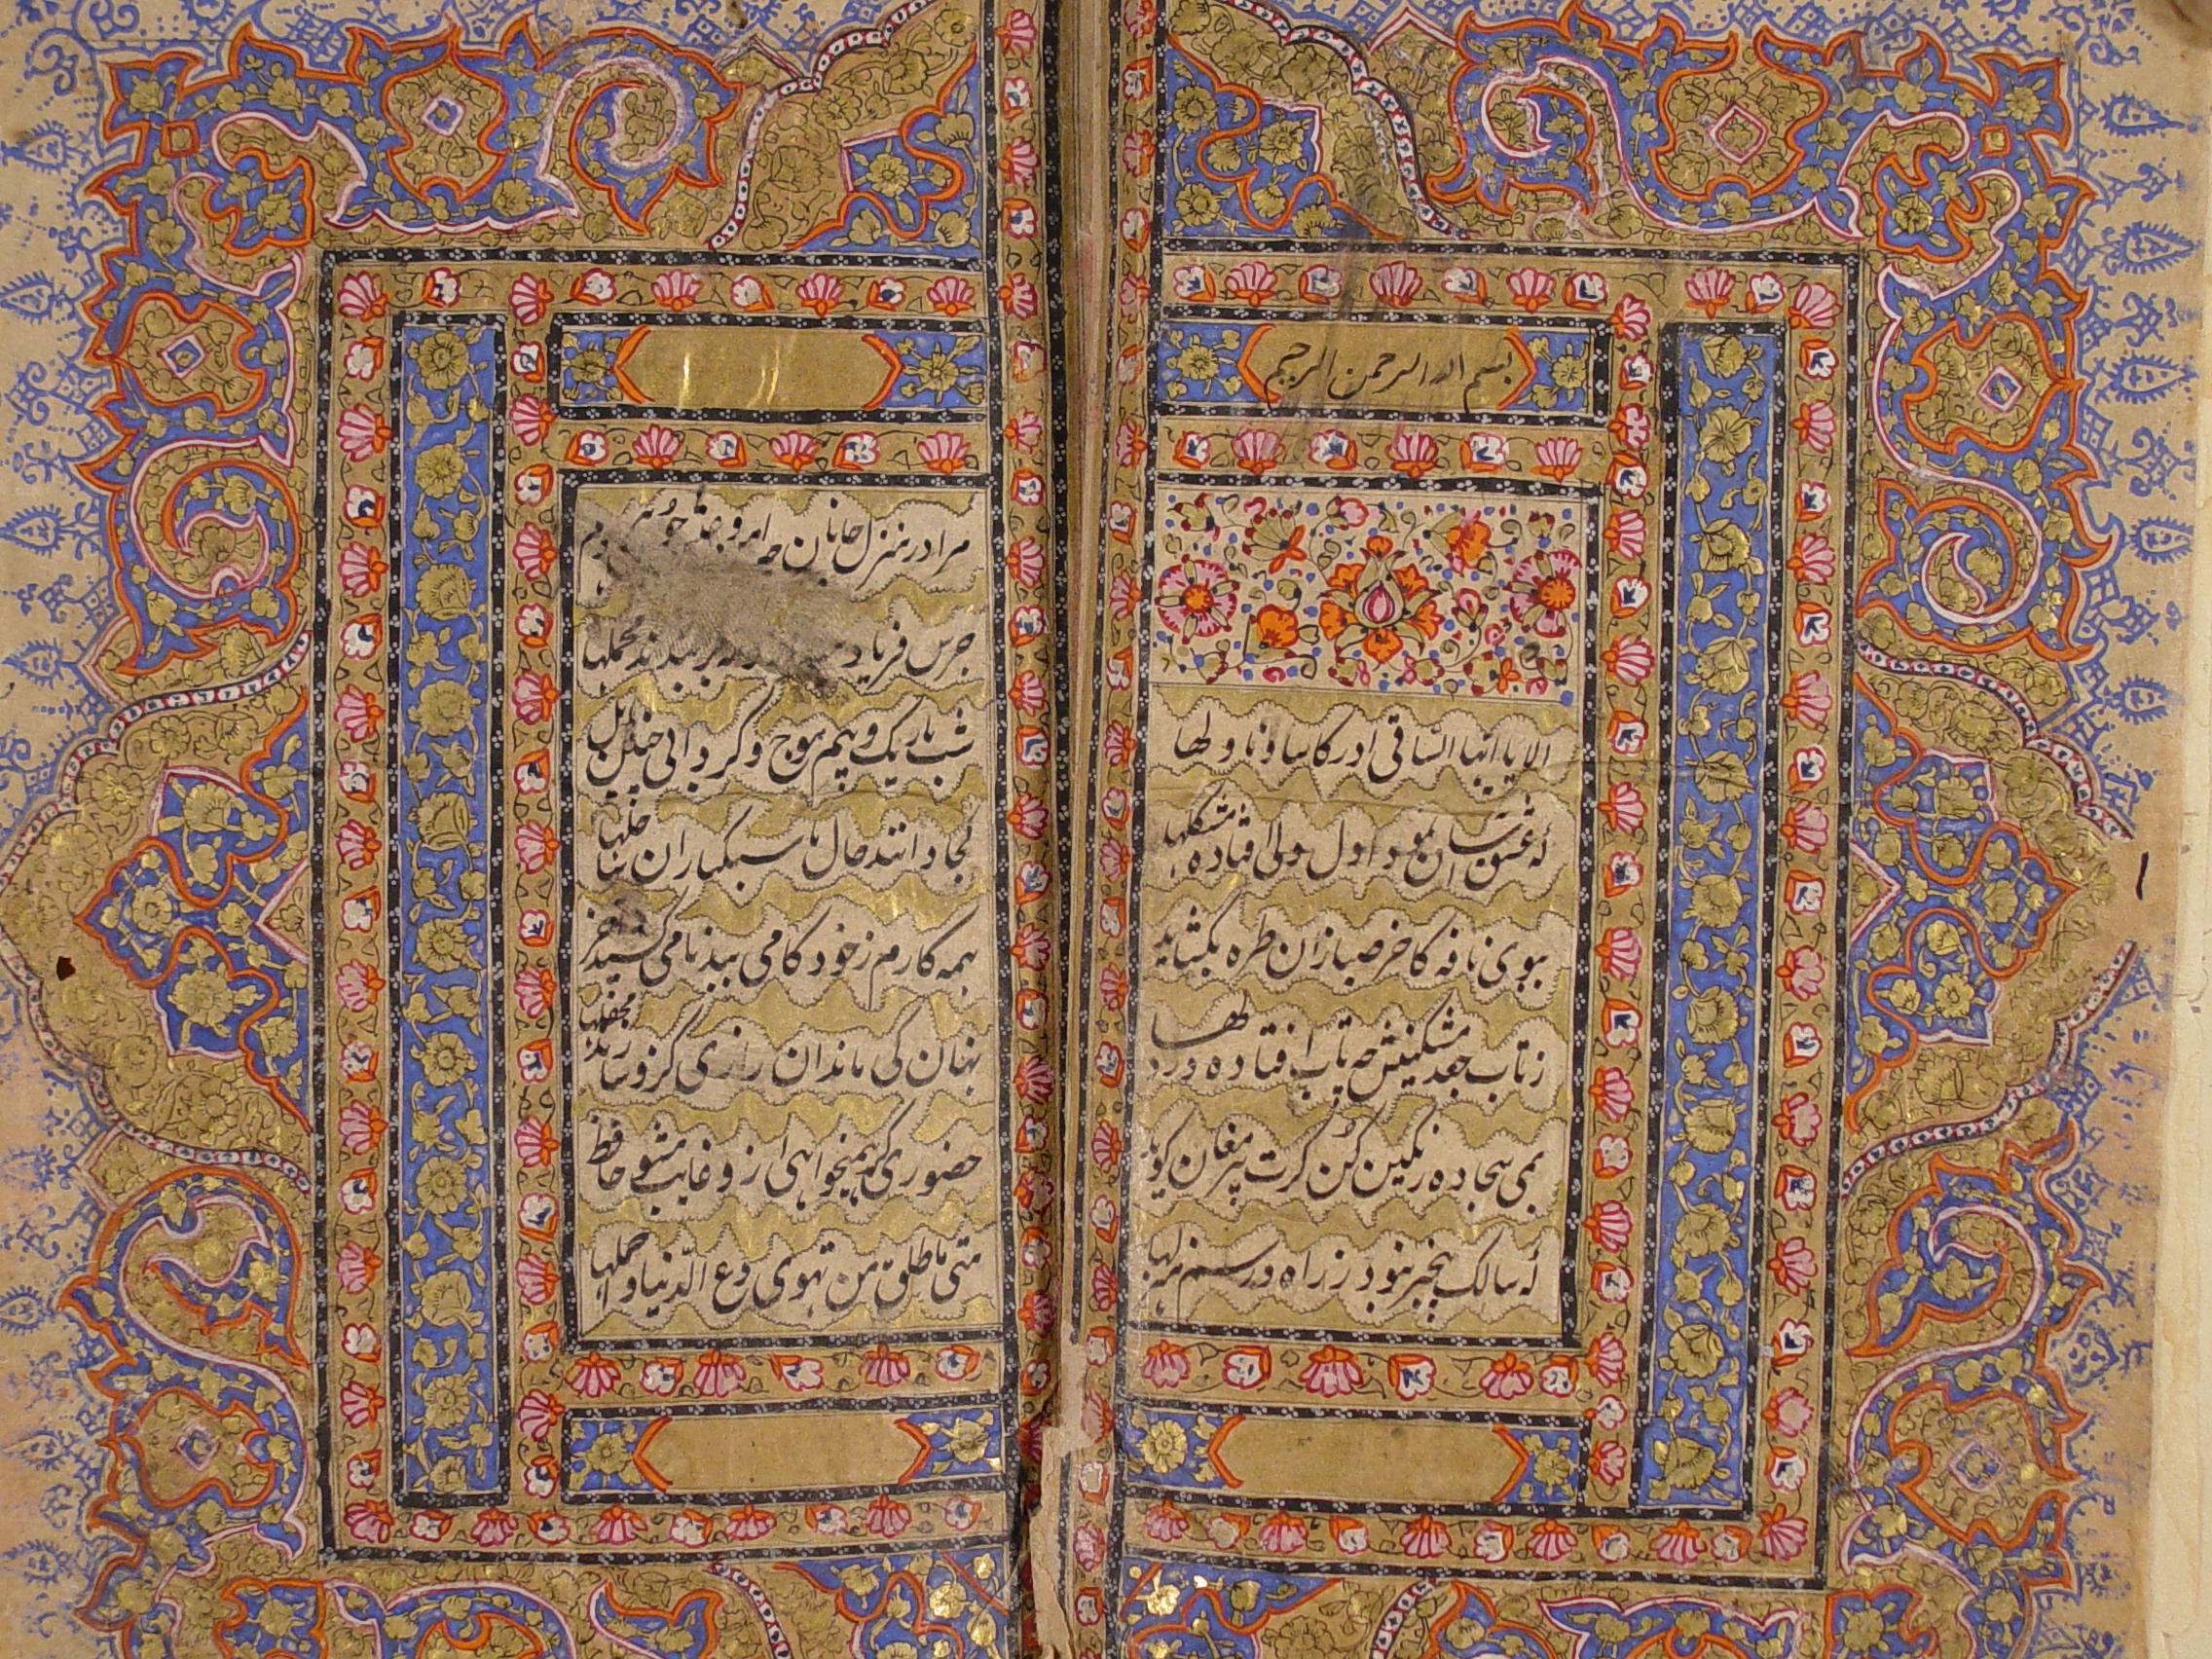 بسم الله الرحمن الرحیم
الا یا ایها الساقی ادر کاسا و ناولها
که عشق آسان نمود اول ولی افتاده مشکلها
ببوی نافه کاخر صبا زان طره بکشاید
ز تاب جعد مشکینش چه تاب افتاده در دلها
بمی سجاده رنکین کن کرت پیر مغان کوید
که سالک بیخبر نبود ز راه و رسم منزلها
مرا در منزل جانان چه امن و
جرس فریاد بربندید محملها
شب تاریک و بیم موج و کردابی چنین هایل
کجا دانند حال ما سبکباران ساحلها
همه کارم ز خود کامی ببدنامی کشید آخر
نهان کی ماند آن رازی کزو سازند محفلها
حضوری کر همیخواهی ازو غایب مشو حافظ
متی ما تلق من تهوی دع الدنیا و اهملها